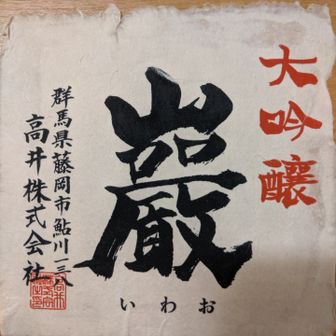 大吟醸
巖
いわお
群馬県藤岡市鮎川一三八
高井株式会社